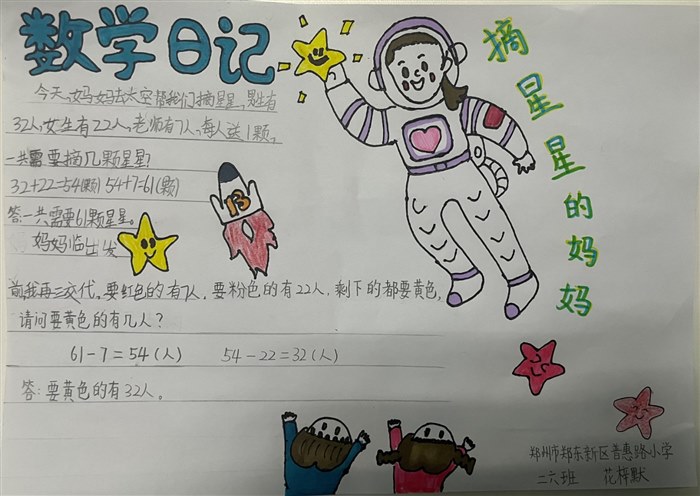 数学日记
摘星星的妈妈
今天,妈妈去太空替我们摘星星,男生有
32人,女生有22人,老师有7人,每人送1颗,
一共需要摘几颗星星?
32+22=54(颗) 54+7=61(颗)
答:一共需要61颗星星。
妈妈临出发
前我再三交代,要红色的有7人,要粉色的有22人,剩下的都要黄色,
请问要黄色的有几人?
61-7=54(人) 54-22=32(人)
答:要黄色的有32人。
13
郑州市郑东新区普惠路小学
二六班 花梓默